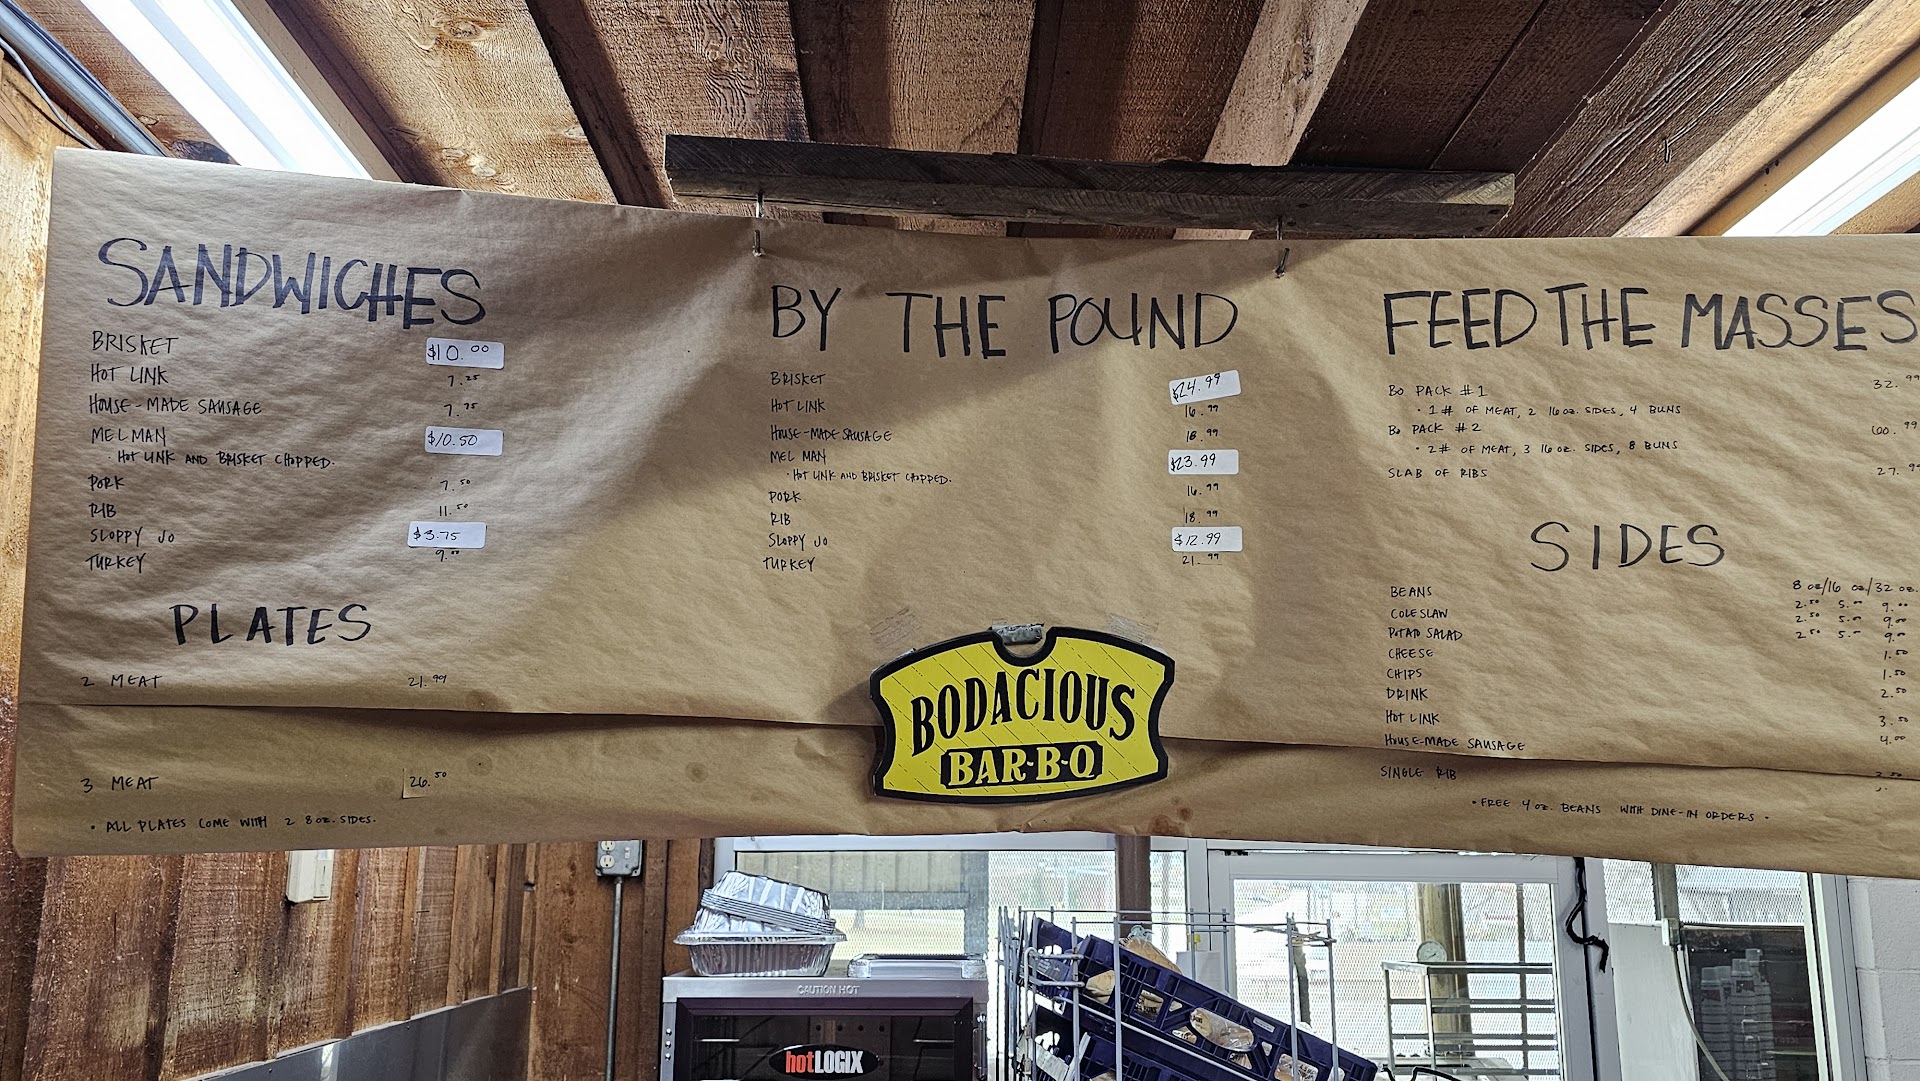 SANDWICHES
BRISKET $10.00
HOT LINK 7.25
HOUSE-MADE SAUSAGE 7.75
MEL MAN $10.50
• HOT LINK AND BRISKET CHOPPED.
PORK 7.50
RIB 11.50
SLOPPY JO $3.75
TURKEY 9.00
PLATES
2 MEAT 21.99
3 MEAT 26.50
• ALL PLATES COME WITH 2 8 OZ. SIDES.
BY THE POUND
BRISKET $24.99
HOT LINK 16.99
HOUSE-MADE SAUSAGE 18.99
MEL MAN $23.99
• HOT LINK AND BRISKET CHOPPED.
PORK 16.99
RIB 18.99
SLOPPY JO $12.99
TURKEY 21.99
BODACIOUS
BAR-B-Q
FEED THE MASSES
BO PACK #1 32.99
• 1# OF MEAT, 2 16 OZ. SIDES, 4 BUNS
BO PACK #2 60.99
• 2# OF MEAT, 3 16 OZ. SIDES, 8 BUNS
SLAB OF RIBS 27.99
SIDES
8 OZ/16 OZ/32 OZ.
BEANS 2.50 5.00 9.00
COLESLAW 2.50 5.00 9.00
POTATO SALAD 2.50 5.00 9.00
CHEESE 1.50
CHIPS 1.50
DRINK 2.50
HOT LINK 3.50
HOUSE-MADE SAUSAGE 4.00
SINGLE RIB
• FREE 4 OZ. BEANS WITH DINE-IN ORDERS •
CAUTION HOT
hotLOGIX